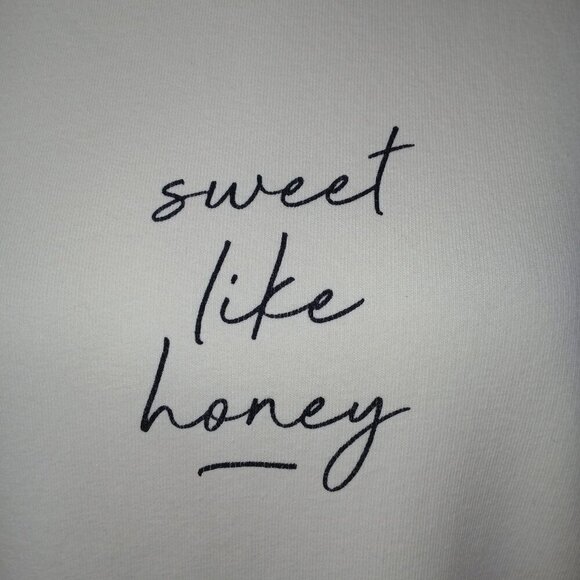 sweet
like
honey